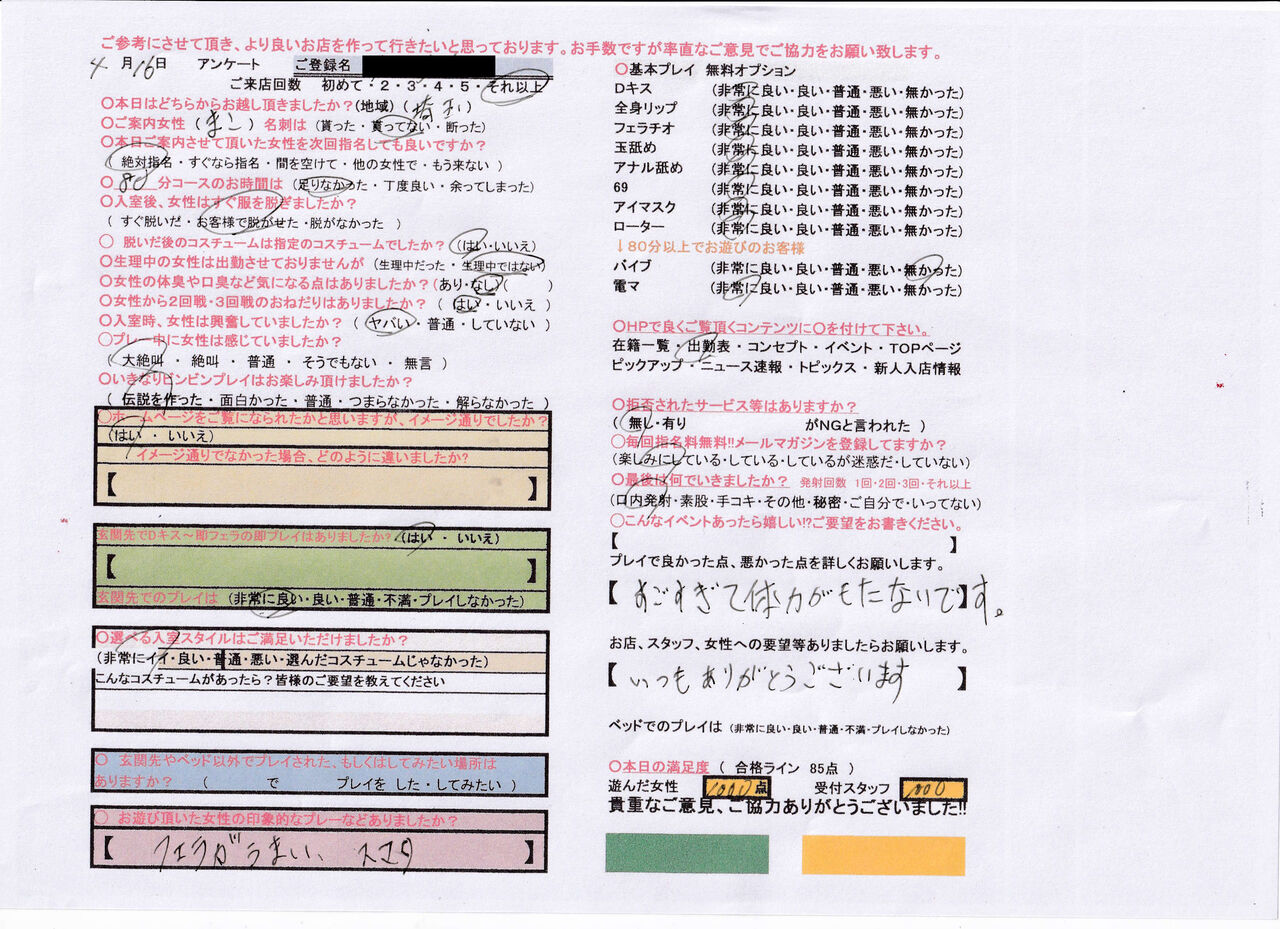 ご参考にさせて頂き、より良いお店を作って行きたいと思っております。お手数ですが率直なご意見でご協力をお願い致します。
4月16日 アンケート ご登録名
ご来店回数 初めて・2・3・4・5・それ以上
〇本日はどちらからお越し頂きましたか?(地域)(埼玉)
〇ご案内女性(まこ)名刺は(貰った・貰ってない・断った)
〇本日ご案内させて頂いた女性を次回指名しても良いですか?
(絶対指名・すぐなら指名・間を空けて・他の女性で・もう来ない)
〇80分コースのお時間は(足りなかった・丁度良い・余ってしまった)
〇入室後、女性はすぐ服を脱ぎましたか?
(すぐ脱いだ・お客様で脱がせた・脱がなかった )
〇 脱いだ後のコスチュームは指定のコスチュームでしたか?(はい・いいえ)
〇生理中の女性は出勤させておりませんが(生理中だった・生理中ではない)
〇女性の体臭や口臭など気になる点はありましたか?(あり・なし)( )
〇女性から2回戦・3回戦のおねだりはありましたか?(はい・いいえ)
〇入室時、女性は興奮していましたか?(ヤバい・普通・していない)
〇プレー中に女性は感じていましたか?
(大絶叫・絶叫・普通・そうでもない・無言)
〇いきなりビンビンプレイはお楽しみ頂けましたか?
(伝説を作った・面白かった・普通・つまらなかった・解らなかった)
〇ホームページをご覧になられたかと思いますが、イメージ通りでしたか?
(はい・いいえ)
イメージ通りでなかった場合、どのように違いましたか?
【 】
玄関先でDキス～即フェラの即プレイはありましたか?(はい・いいえ)
【 】
玄関先でのプレイは(非常に良い・良い・普通・不満・プレイしなかった)
〇選べる入室スタイルはご満足いただけましたか?
(非常にイイ・良い・普通・悪い・選んだコスチュームじゃなかった)
こんなコスチュームがあったら?皆様のご要望を教えてください
〇 玄関先やベッド以外でプレイされた、もしくはしてみたい場所は
ありますか?( で プレイを した・してみたい )
〇 お遊び頂いた女性の印象的なプレーなどありましたか?
【フェラがうまい、スマタ】
〇基本プレイ 無料オプション
Dキス (非常に良い・良い・普通・悪い・無かった)
全身リップ (非常に良い・良い・普通・悪い・無かった)
フェラチオ (非常に良い・良い・普通・悪い・無かった)
玉舐め (非常に良い・良い・普通・悪い・無かった)
アナル舐め (非常に良い・良い・普通・悪い・無かった)
69 (非常に良い・良い・普通・悪い・無かった)
アイマスク (非常に良い・良い・普通・悪い・無かった)
ローター (非常に良い・良い・普通・悪い・無かった)
↓80分以上でお遊びのお客様
バイブ (非常に良い・良い・普通・悪い・無かった)
電マ (非常に良い・良い・普通・悪い・無かった)
〇HPで良くご覧頂くコンテンツに〇を付けて下さい。
在籍一覧・出勤表・コンセプト・イベント・TOPページ
ピックアップ・ニュース速報・トピックス・新人入店情報
〇拒否されたサービス等はありますか?
(無し・有り がNGと言われた )
〇毎回指名料無料!!メールマガジンを登録してますか?
(楽しみにしている・している・しているが迷惑だ・していない)
〇最後は何でいきましたか? 発射回数 1回・2回・3回・それ以上
(口内発射・素股・手コキ・その他・秘密・ご自分で・いってない)
〇こんなイベントあったら嬉しい!?ご要望をお書きください。
【 】
プレイで良かった点、悪かった点を詳しくお願いします。
【すごすぎて体力がもたないで】す。
お店、スタッフ、女性への要望等ありましたらお願いします。
【いつもありがとうございます】
ベッドでのプレイは(非常に良い・良い・普通・不満・プレイしなかった)
〇本日の満足度(合格ライン 85点 )
遊んだ女性 1000点 受付スタッフ 1000
貴重なご意見、ご協力ありがとうございました!!